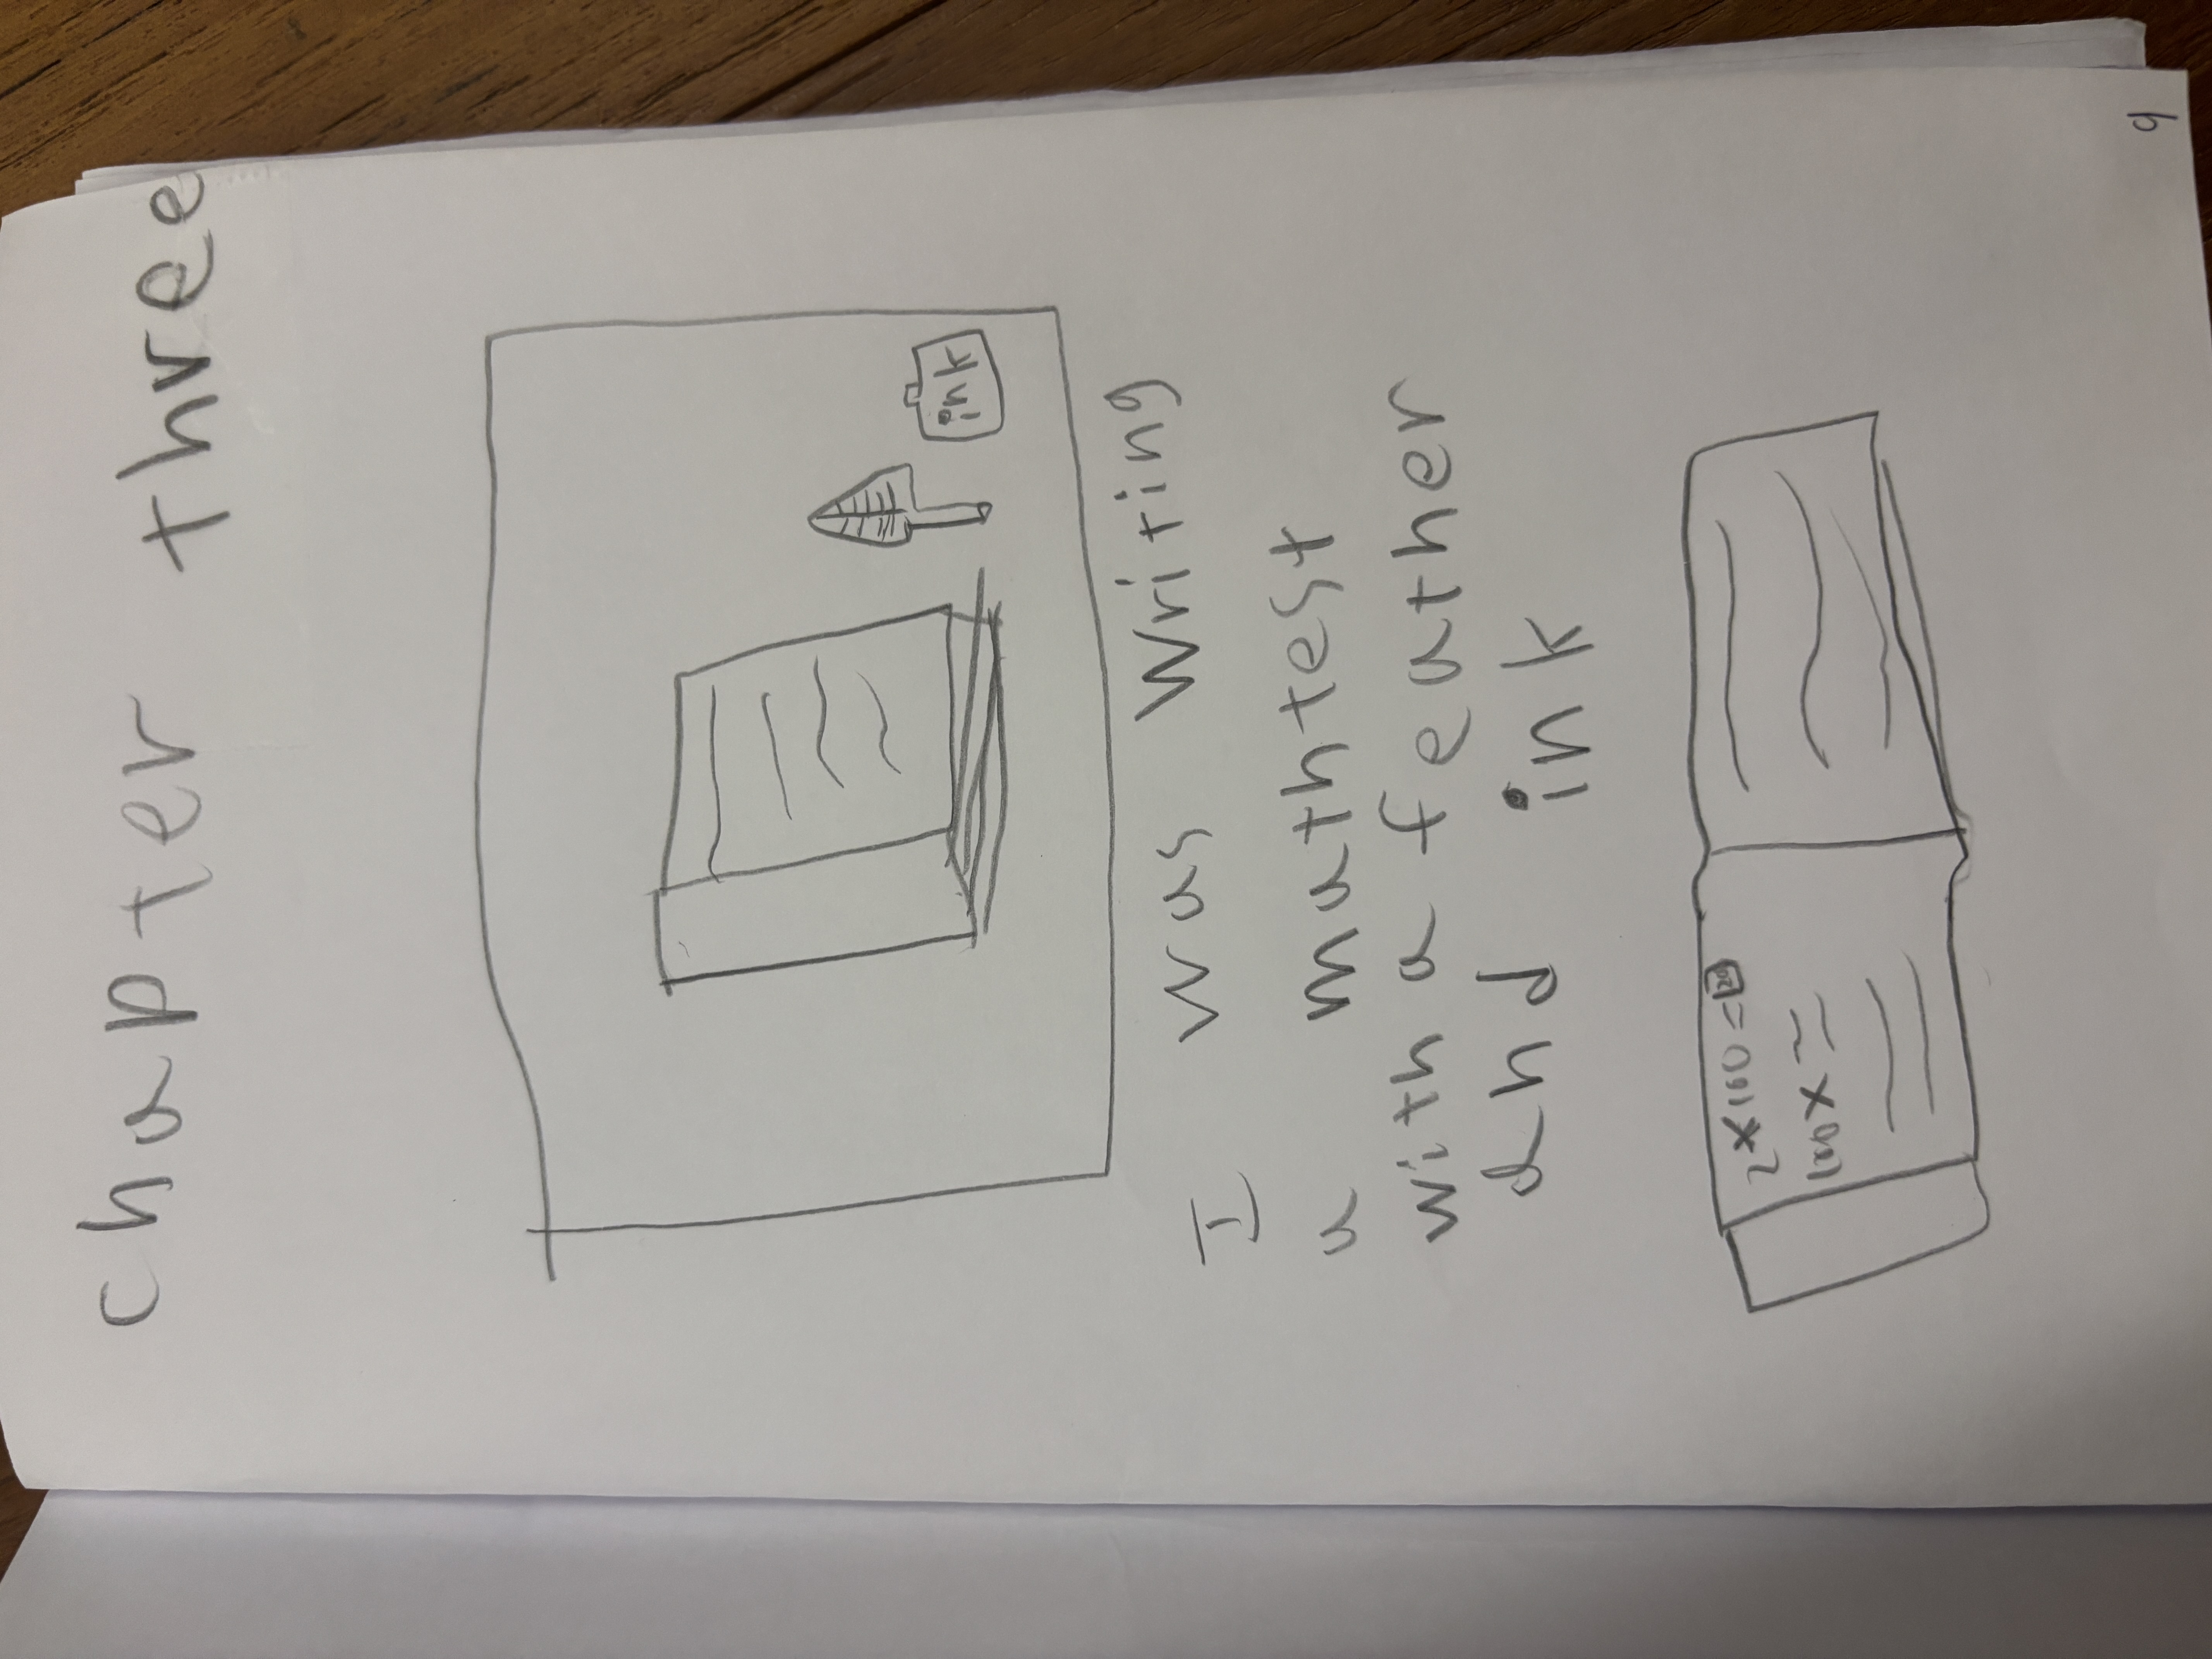 chapter three
ink
I was Writing
a mathtest
with a feather
and ink
2 x 100 =
100 x =
9